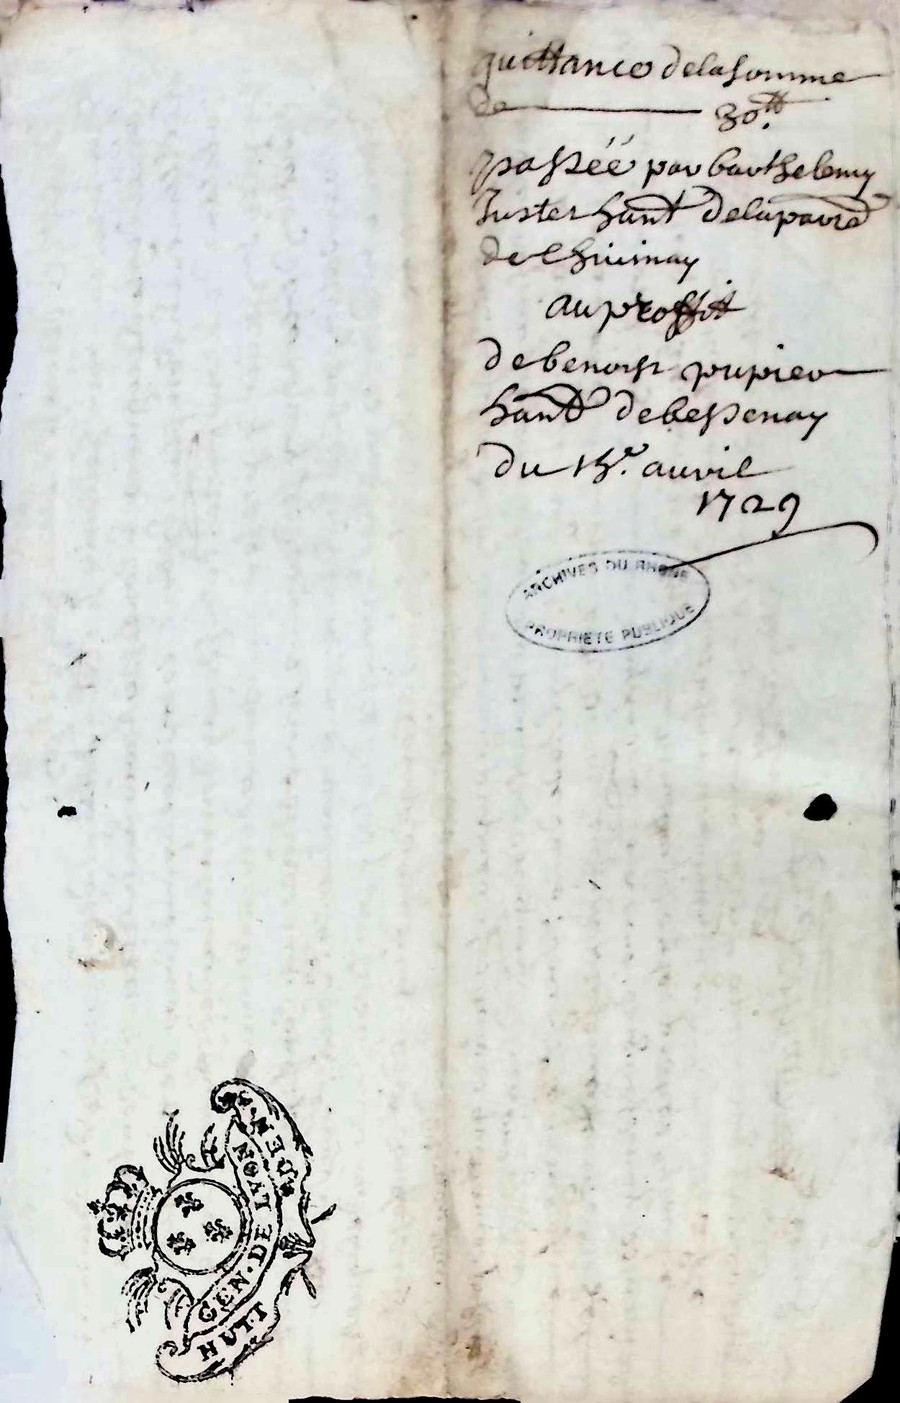 quittance de la somme
de 30.tt
passéé par barthelemy
Juster hant de la paroé
de Chiuinay
au proffit
de benoist pupier
hant de bessenay
du 15.e auril
1729
ARCHIVES DU RHONE
PROPRIETE PUBLIQUE
GEN. DE LYON
HUIT DEN